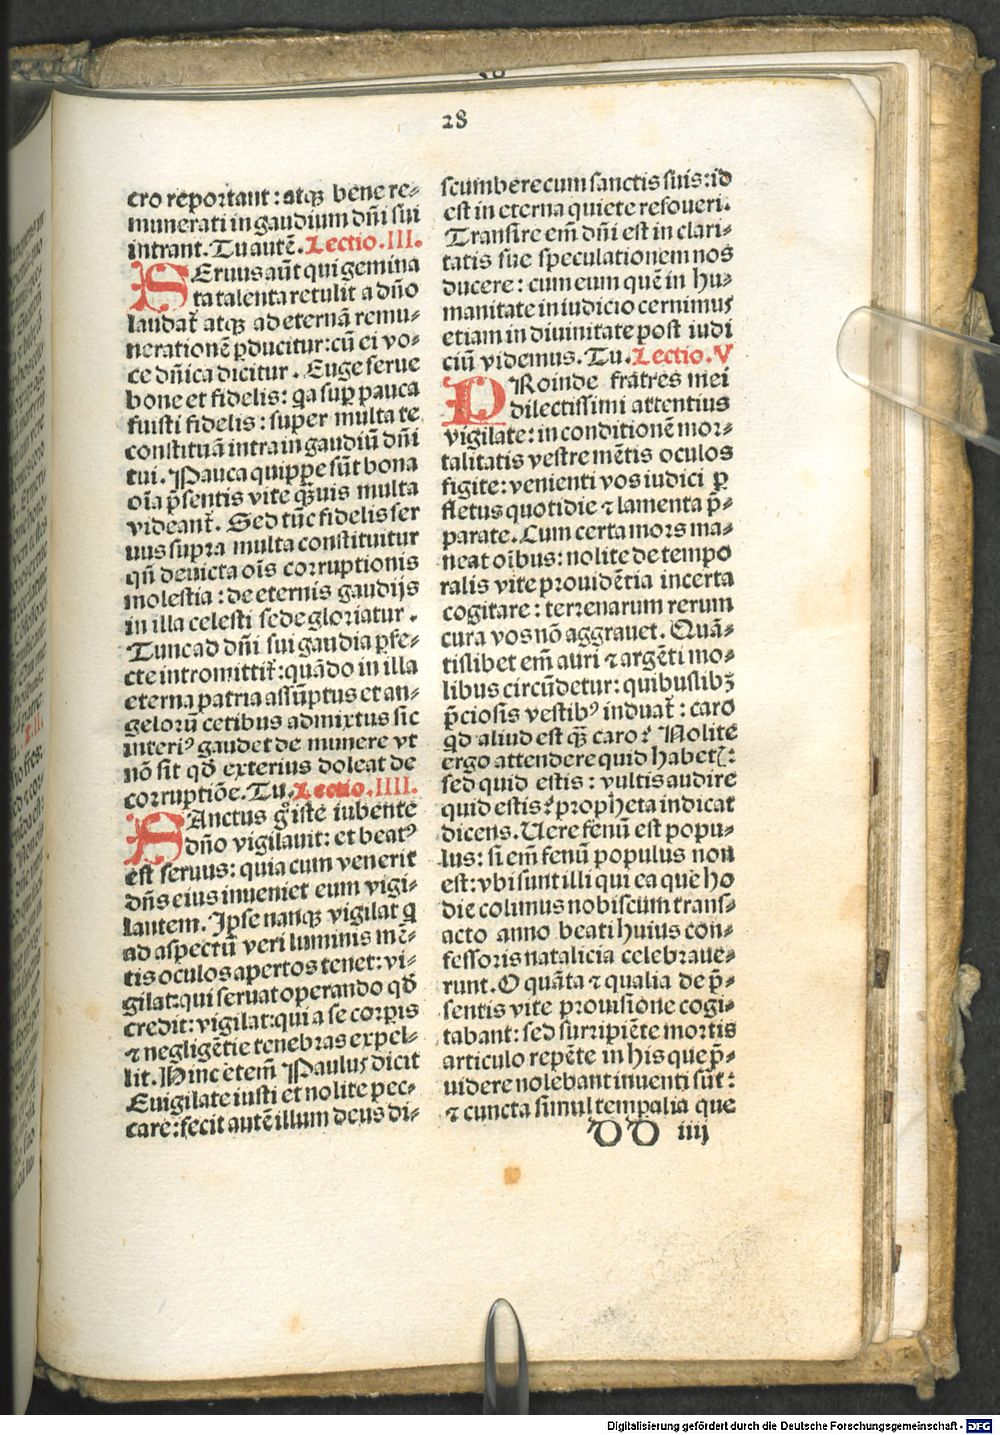 28
cro reportant: atqꝫ bene re⸗
munerati in gaudium dñi sui
intrant. Tu autē. Lectio.III.
SEruus aūt qui gemina
ta talenta retulit a dño
laudat̄ atqꝫ ad eternā remu⸗
nerationē ꝓducitur: cū ei vo⸗
ce dñica dicitur. Euge serue
bone et fidelis: qa suꝑ pauca
fuisti fidelis: super multa te
constituā intra in gaudiū dñi
tui. Pauca quippe sūt bona
oīa p̄sentis vite q̄uis multa
videant̄. Sed tūc fidelis ser
uus supra multa constituitur
qn̄ deuicta oīs corruptionis
molestia: de eternis gaudijs
in illa celesti sede gloriatur.
Tunc ad dñi sui gaudia ꝑfe⸗
cte intromittit̄: quādo in illa
eterna patria assūptus et an⸗
gelorū cetibus admixtus sic
interiꝰ gaudet de munere vt
nō sit qḋ exterius doleat de
corruptiōe. Tu. Lectio.IIII.
SAnctus gͦ iste iubente
dño vigilauit: et beatꝰ
est seruus: quia cum venerit
dñs eius inueniet eum vigi⸗
lantem. Ipse nanqꝫ vigilat q
ad aspectū veri luminis mē⸗
tis oculos apertos tenet: vi⸗
gilat: qui seruat operando qḋ
credit: vigilat: qui a se corꝑis
⁊ negligētie tenebras expel⸗
lit. Hinc etem̄ Paulus dicit
Euigilate iusti et nolite pec⸗
care: fecit autē illum deus di⸗
scumbere cum sanctis suis: id
est in eterna quiete refoueri.
Transire em̄ dñi est in clari⸗
tatis sue speculationem nos
ducere: cum eum quē in hu⸗
manitate in iudicio cernimus
etiam in diuinitate post iudi
ciū videmus. Tu. Lectio.V
PRoinde fratres mei
dilectissimi attentius
vigilate: in conditionē mor⸗
talitatis vestre mētis oculos
figite: venienti vos iudici ꝑ
fletus quotidie ⁊ lamenta p̄⸗
parate. Cum certa mors ma⸗
neat oībus: nolite de tempo
ralis vite prouidētia incerta
cogitare: terrenarum rerum
cura vos nō aggrauet. Quā⸗
tislibet em̄ auri ⁊ argēti mo⸗
libus circūdetur: quibuslibꝫ
p̄ciosis vestibꝰ induat̄: caro
qḋ aliud est q̄ caro? Nolite
ergo attendere quid habetꝭ:
sed quid estis: vultis audire
quid estis? propheta indicat
dicens. Uere fenū est popu⸗
lus: si em̄ fenū populus non
est: vbi sunt illi qui ea que ho
die colimus nobiscum trans⸗
acto anno beati huius con⸗
fessoris natalicia celebraue⸗
runt. O quāta ⁊ qualia de p̄⸗
sentis vite prouisione cogi⸗
tabant: sed surripiēte mortis
articulo repēte in his que p̄⸗
uidere nolebant inuenti sūt:
⁊ cuncta simul temporalia que
DD iiij
Digitalisierung gefördert durch die Deutsche Forschungsgemeinschaft - DFG